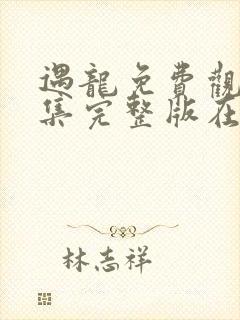 遇龍免費觀
集完整版在
林志祥